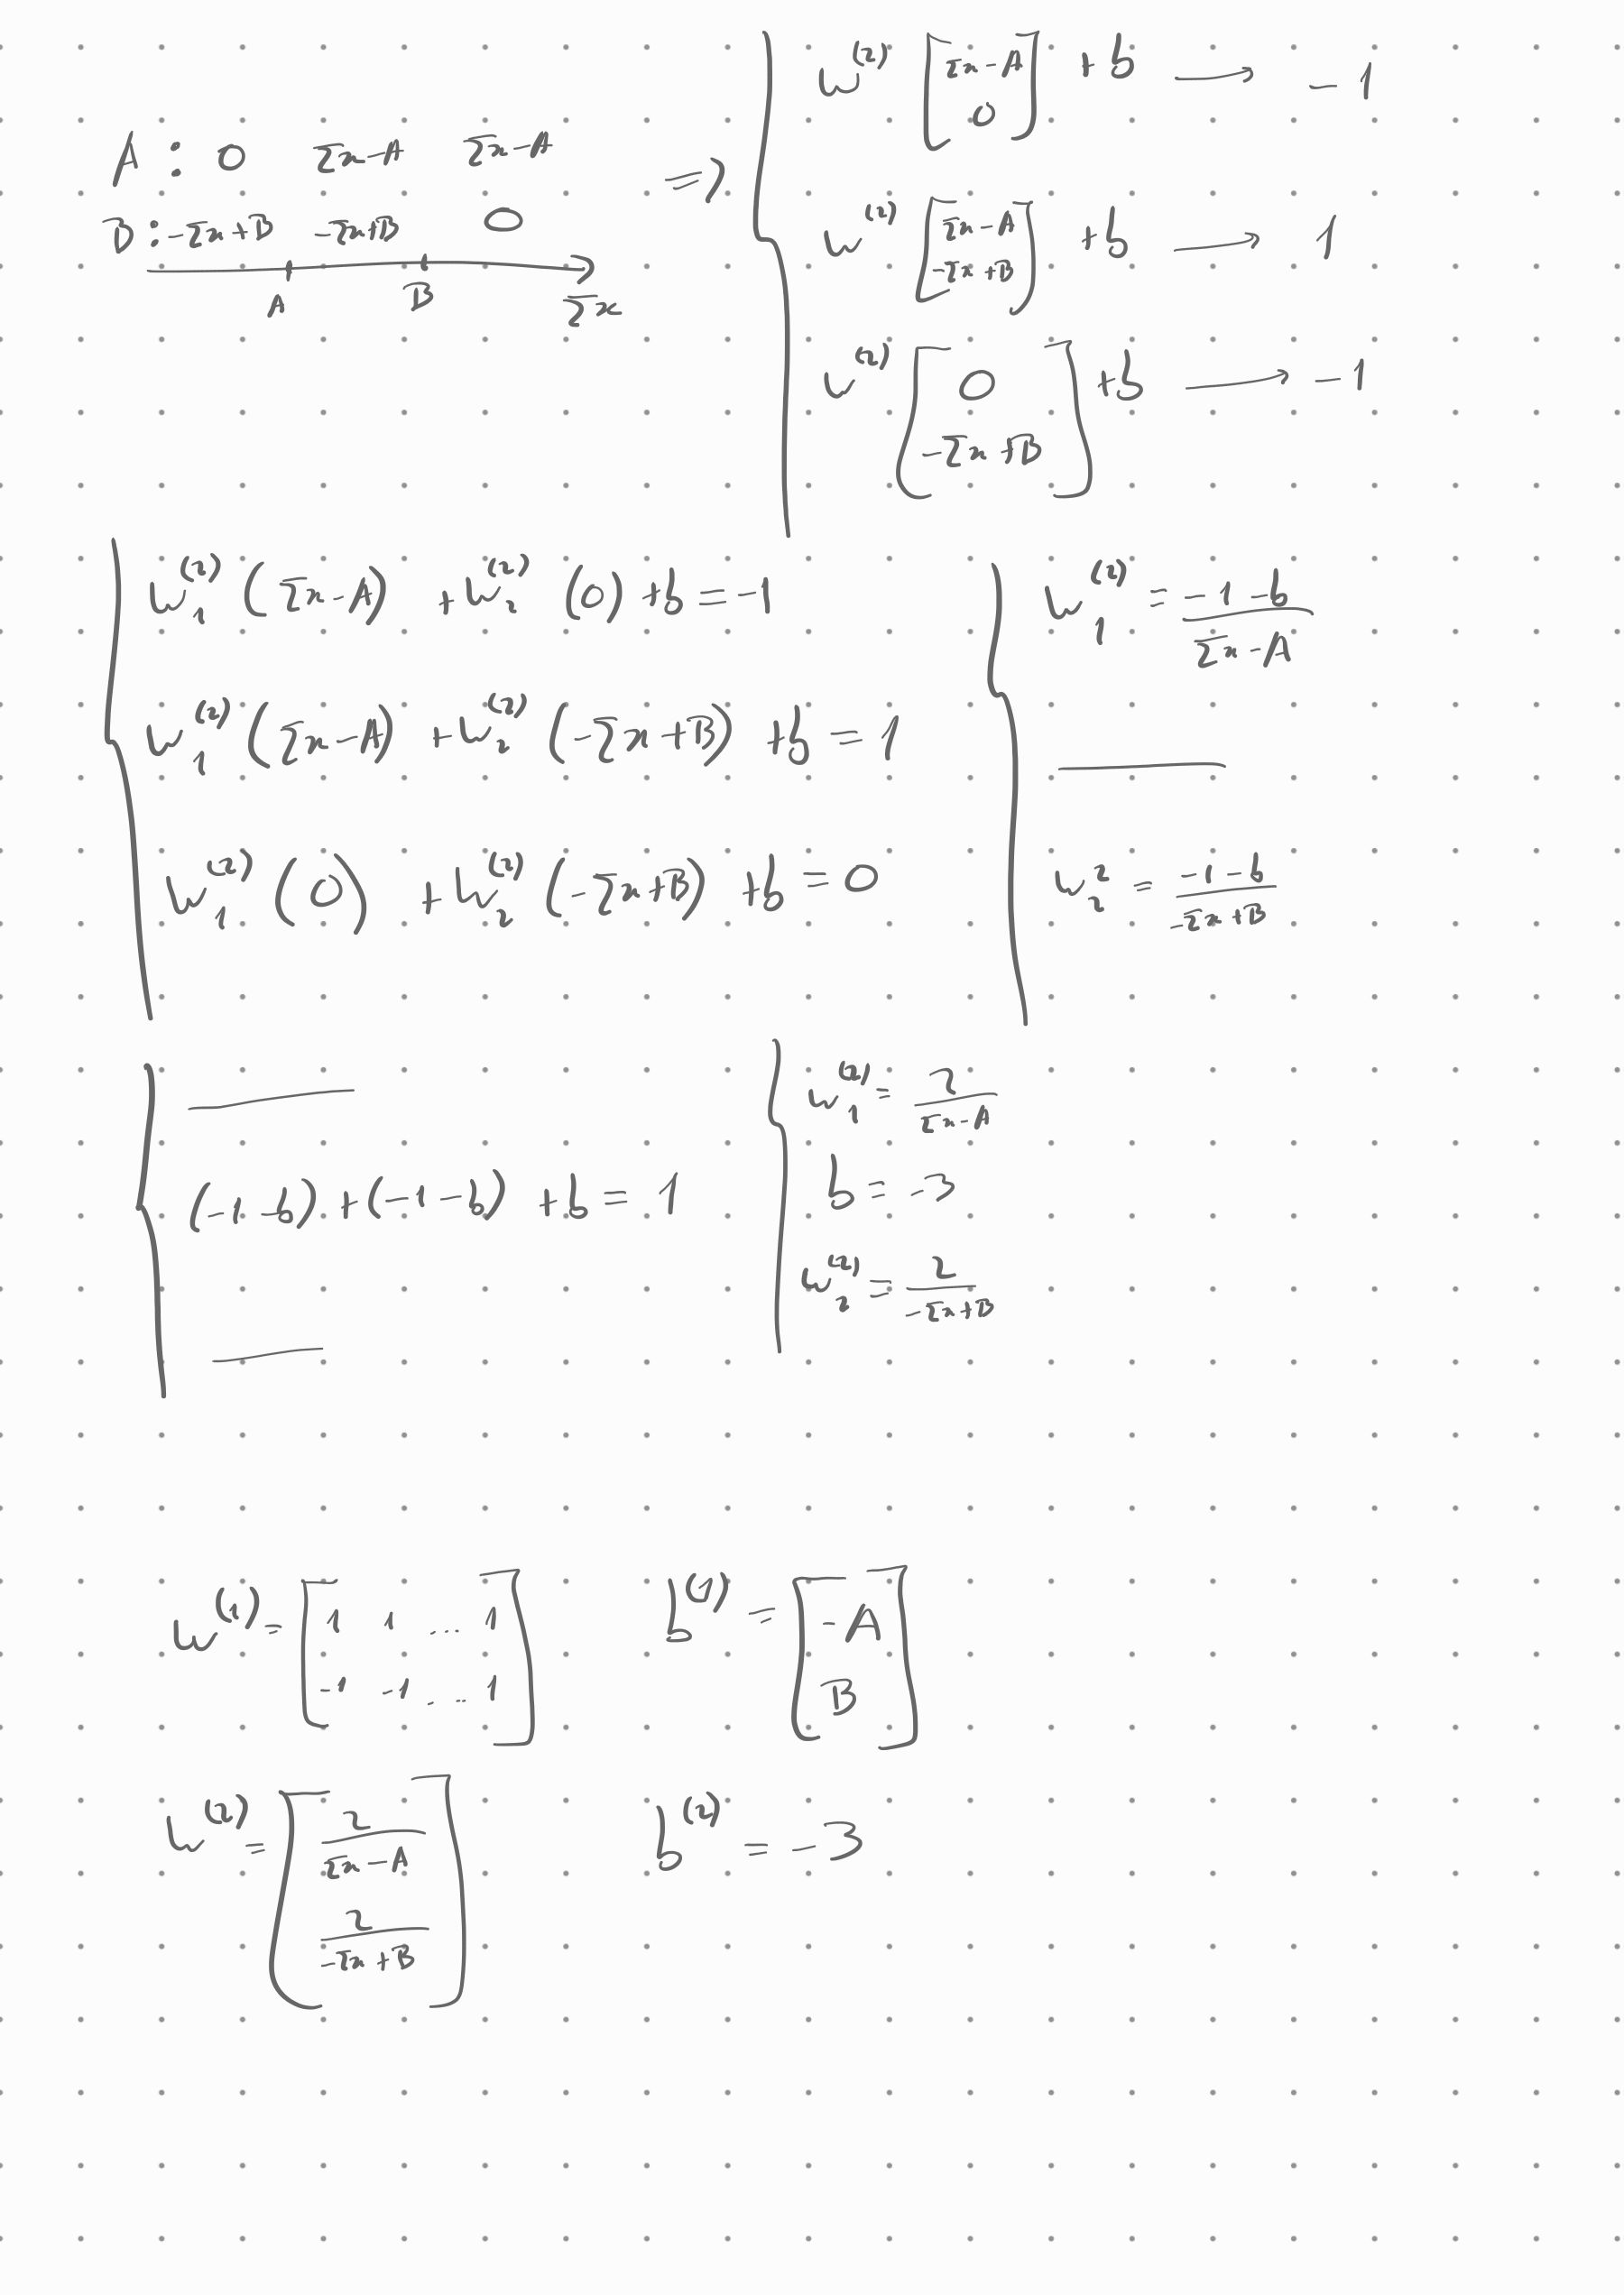 A : 0 Σx-A Σx-A
B : -Σx+B -Σx+B 0
A B Σx
=>
W^(2) [Σx-A 0] + b → -1
W^(2) [Σx-A -Σx+B] + b → 1
W^(2) [0 -Σx+B] + b → -1
W_1^(2) (Σx-A) + W_2^(2) (0) + b = -1
W_1^(2) (Σx-A) + W_2^(2) (-Σx+B) + b = 1
W_1^(2) (0) + W_2^(2) (-Σx+B) + b = 0
W_1^(2) = (-1-b)/(Σx-A)
W_2^2 = (-1-b)/(-Σx+B)
(-1-b) + (-1-b) + b = 1
W_1^(2) = 2/(Σx-A)
b = -3
W_2^(2) = 2/(-Σx+B)
W^(1) = [1 1 ... 1
-1 -1 ... 1]
b^(1) = [-A
B]
W^(2) = [2/(Σx-A)
2/(-Σx+B)]
b^(2) = -3